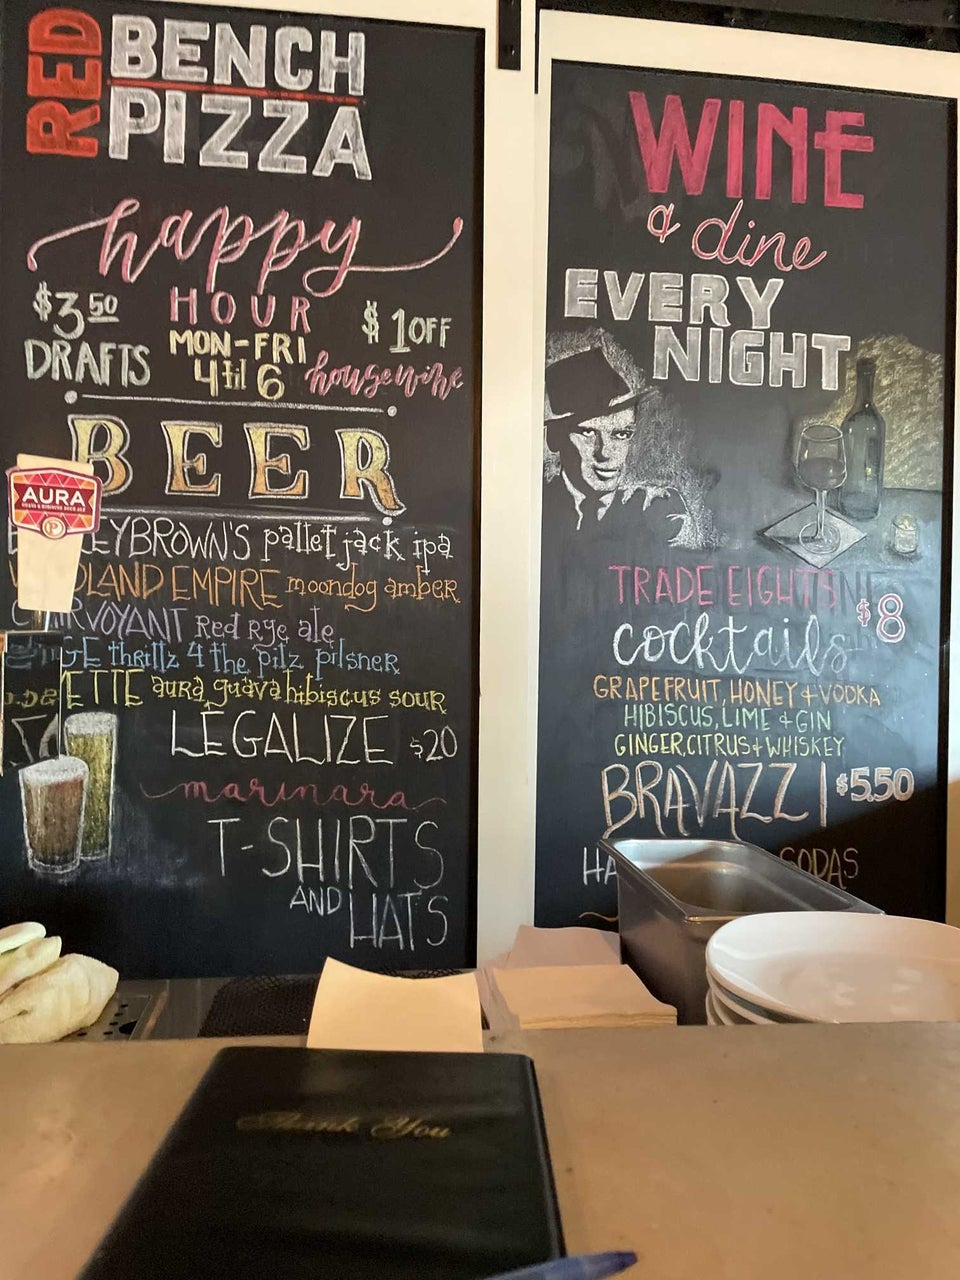 RED
BENCH
PIZZA
happy
HOUR
$3.50
DRAFTS
MON-FRI
4 til 6
$1 OFF
housewine
BEER
AURA
EYBROWN'S pallet jack ipa
LAND EMPIRE moondog amber
VOYANT Red Rye ale
GE thrillz 4 the pilz pilsner
ETTE aura guava hibiscus sour
LEGALIZE $20
marinara
T-SHIRTS
AND
HATS
WINE
& dine
EVERY
NIGHT
TRADE EIGHTS
$8
cocktails
GRAPEFRUIT, HONEY & VODKA
HIBISCUS, LIME & GIN
GINGER, CITRUS & WHISKEY
BRAVAZZI $5.50
HA SODAS
Thank You